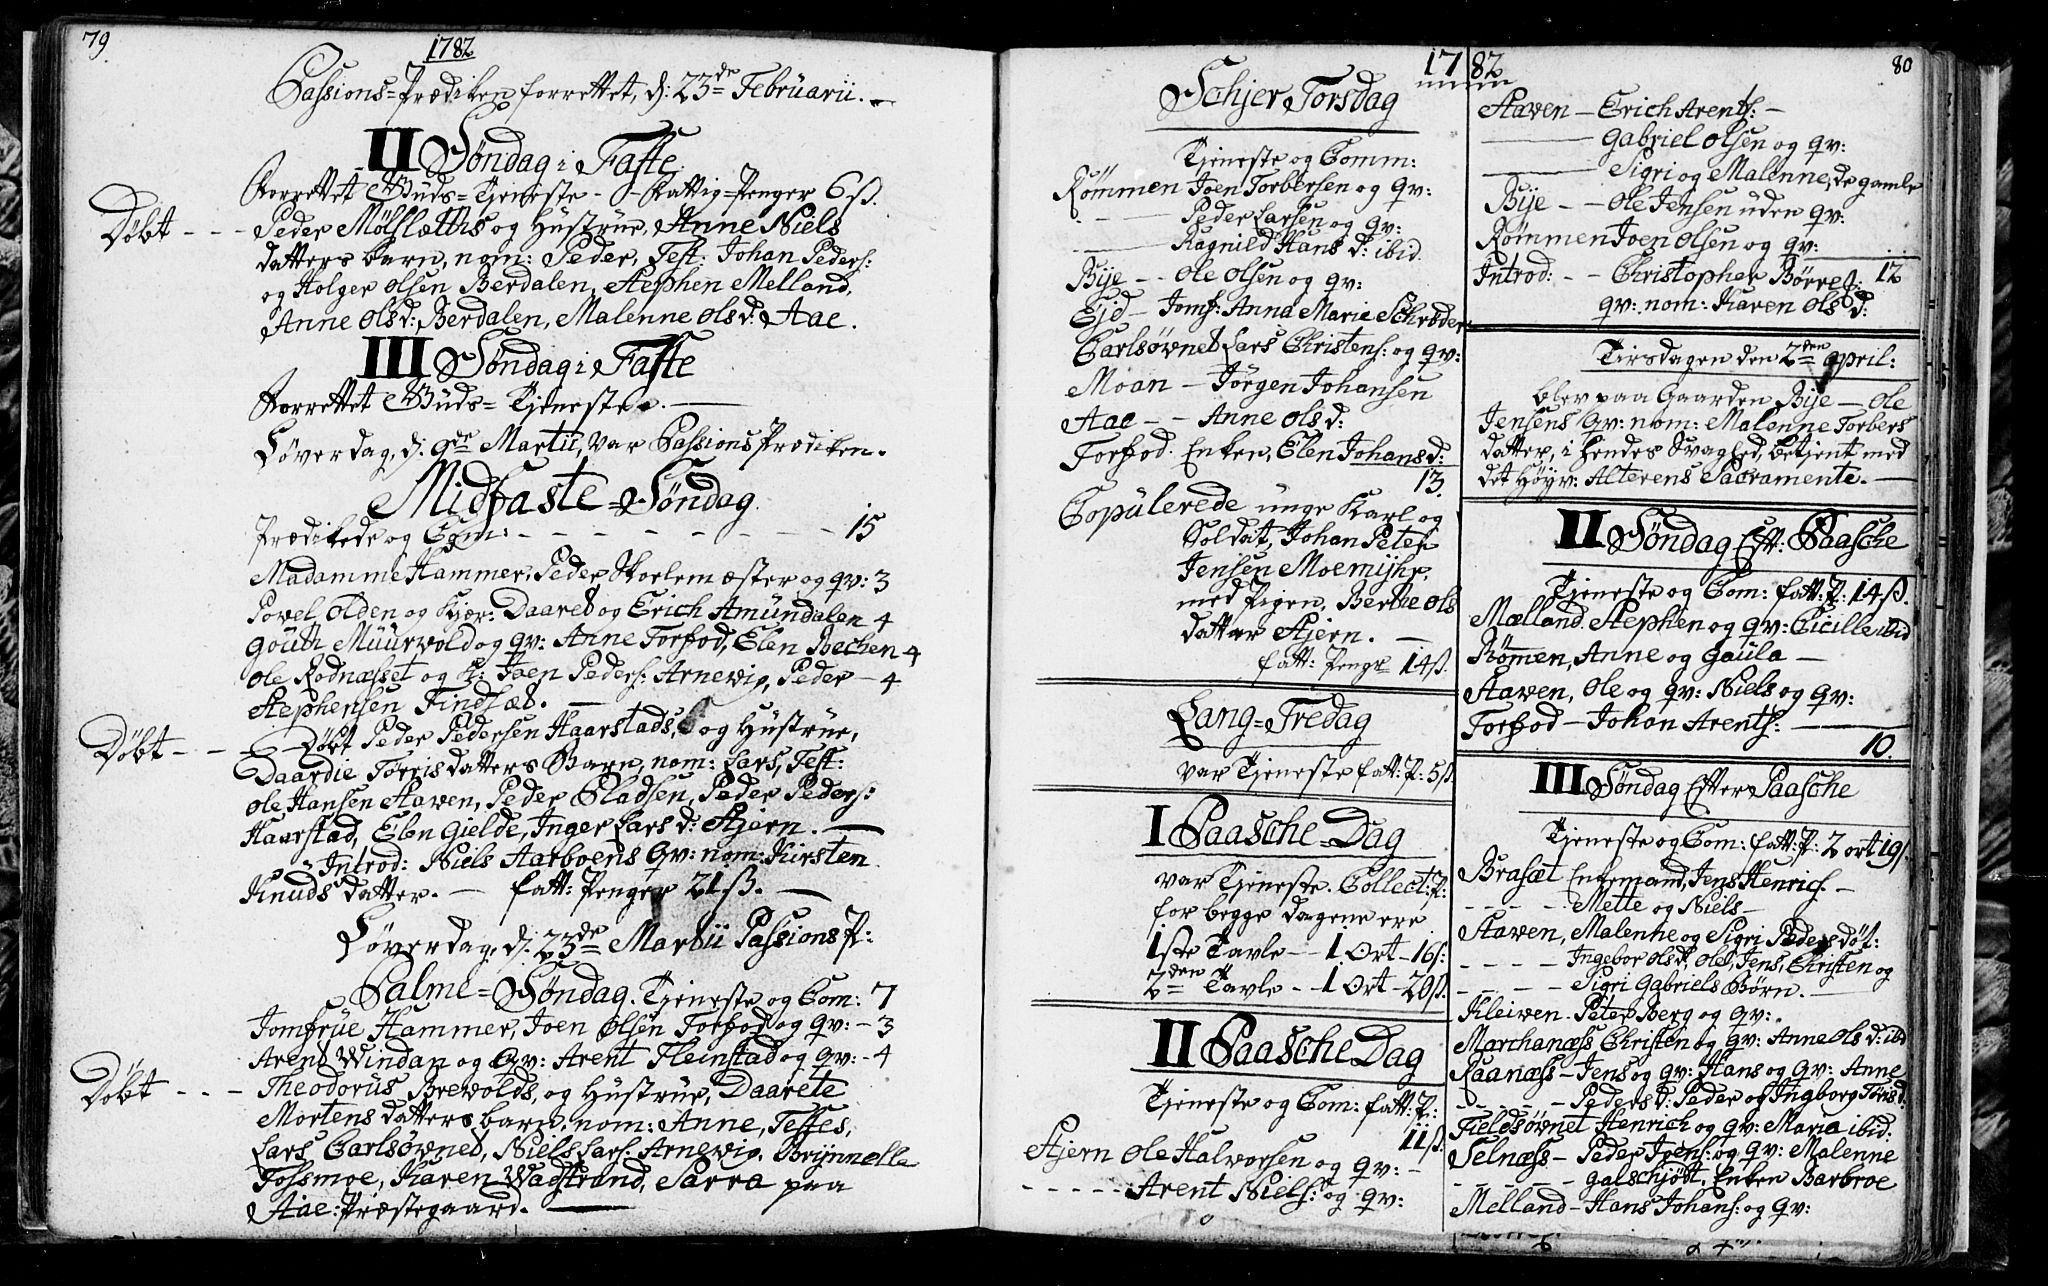 79.
1782
Passions=Prædiken forrettet, d: 23de Februarii.
II Søndag i Faste
Forrettet Guds=Tjeneste - Fattig=Penger 6 ß.
Døbt - - - Peder Mølslætths og Hustrue, Anne Niels
datters barn, nom: Peder, Test: Johan Peders:
og Holger Olsen Berdalen, Stephen Melland,
Anne Olsd: Berdalen, Malenne Olsd: Aae.
III Søndag i Faste
Forrettet Guds=Tjeneste.
Løverdag, d: 9de Martii, var Passions Prædiken.
Midfaste=Søndag
Prædikede og Com: - - - - - - - 15
Madamme Hammer, Peder Skoelemæster og qv: 3
Povel Olden og Kjær: Daaret og Erich Amundalen 4
Gouth Muurvold og qv: Anne Forfod, Elen Bechen 4
Ole Rodnæsset og K: Joen Peders: Arnevig, Peder - 4
Stephensen Findsæt.
Døbt - - - Døbt Peder Pedersen Haarstads, og Hustrue,
Daardie Tørrisdatters Barn, nom: Lars, Test:
Ole Hansen Staven, Peder Pladsen, Peder Peders:
Haarstad, Elen Gielde, Inger Larsd: Stjern.
Introd: Niels Aarboens Qv: nom: Kirsten
Knuds datter. - fatt: Penger 21 ß.
Løverdag, d: 23de Martii Passions P:
Palme=Søndag. Tjeneste og Com: 7
Jomfrue Hammer, Joen Olsen Forfod og qv: - 3
Arent Windan og Qv: Arent Fleinstad og qv: - 4
Døbt - - - Theodorus Brevolds, og Hustrue, Daarete
Mortens datters barn, nom: Anne, Testes,
Lars Carlsøvnet, Niels Lars: Arnevig, Brynnelle
Fossmoe, Karen Wadstrand, Sarra paa
Aae: Præstegaard.
1782
80
Schjer Torsdag
Tjeneste og Comm:
Rømmen Joen Torbersen og qv:
- Peder Larsen og qv:
Ragnild Hansd: ibid.
Bije - - Ole Olsen og qv:
Ejd - Jomf: Anna Maria Schrøder
Carlsøvnet Lars Christens: og qv:
Moan - Jørgen Johansen
Aae - - Anne Olsd:
Forfod. Enken, Elen Johansd:
13.
Copulerede unge Karl og
Soldat, Johan Peter
Jensen Moemyhr,
med Pigen, Berthe Ols
datter Stjern.
fatt: Pengr 14 ß.
Lang=Fredag
var Tjeneste fatt: P: 5 ß.
I Paasche=Dag
var Tjeneste. Collect: P:
for begge dagene ere
1ste Tavle - - 1 Ort - 16 ß:
2den Tavle - - 1 Ort - 20 ß.
II Paasche Dag
Tjeneste og Com: fatt: P:
11 ß.
Stjern Ole Halvorsen og qv: -
- - - - - Arent Niels: og qv:
Staven - Erich Arents: -
Gabriel Olsen og qv:
Sigri og Malenne, de gamle
Bije - - Ole Jensen uden qv:
Rømmen Joen Olsen og qv:
12
Introd: - - Christopher Børres:
qv: nom: Karen Olsd:
Tirsdagen den 2den april:
blev paa Gaarden Bije - Ole
Jensens Qv: nom: Malenne Torbers
datter, i hendes Svaghed, betjent med
det Høyv: Alterens Sacramente.
II Søndag Eft: Paasche
Tjeneste og Com: fatt: P: 14 ß.
Mælland Stephen og qv: Cicille ibid
Rømmen, Anne og Gaula -
Staven, Ole og qv: Niels og qv:
Forfod - Johan Arents:
10.
III Søndag Efter Paasche
Tjeneste og Com: fatt: P: 2 ort 19 ß.
Brasæt Enkemand, Jens Henrichs: -
- - - - Mette og Niels -
Staven, Malenne og Sigri Pedersdøt:
- - - - Ingebor Olsd, Ole, Jens, Christen og
- - - - Sigri Gabriels Børn.
Kleiven. Peter Berg og qv:
Marchanæss Christen og qv: Anne Olsd: ibid
Raanæss - Jens og qv: Hans og qv: Anne
- - - - Pedersd: Peder og Ingborg Tørisd:
Fieldsøvnet Henrich og qv: Maria ibid:
Selnæss - Peder Joens: og qv: Malenne
- - - - Galschjøtt. Enken Barbroe
Melland - Hans Johans: og qv: